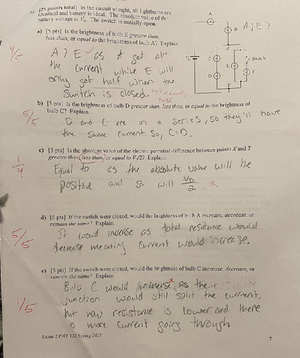 [25 points total] In the circuit at right, all lightbulbs are
identical and battery is ideal. The absolute value of the
battery voltage is V₀. The switch is initially open.
a) [5 pts] Is the brightness of bulb E greater than,
less than, or equal to the brightness of bulb A? Explain.
4/5
A > E as A got all
the current while E will
only get half when the
switch is closed.
b) [5 pts] Is the brightness of bulb D greater than, less than, or equal to the brightness of
bulb C? Explain.
5/5
D and C are in a series, so they'll have
the same current. So, C=D.
c) [3 pts] Is the absolute value of the electric potential difference between points X and Y
greater than, less than, or equal to V₀/2? Explain.
Equal to as the absolute value will be
positive and so will V₀/2. x
d) [5 pts] If the switch were closed, would the brightness of bulb A increase, decrease, or
remain the same? Explain.
5/5
It would increase as total resistance would
decrease meaning current would increase.
e) [5 pts] If the switch were closed, would the brightness of bulb C increase, decrease, or
remain the same? Explain.
1/5
Bulb C would increase as there
junction would still split the current,
but now resistance is lower and there
is more current going through
Exam 2 PHY 122 Spring 2023
7